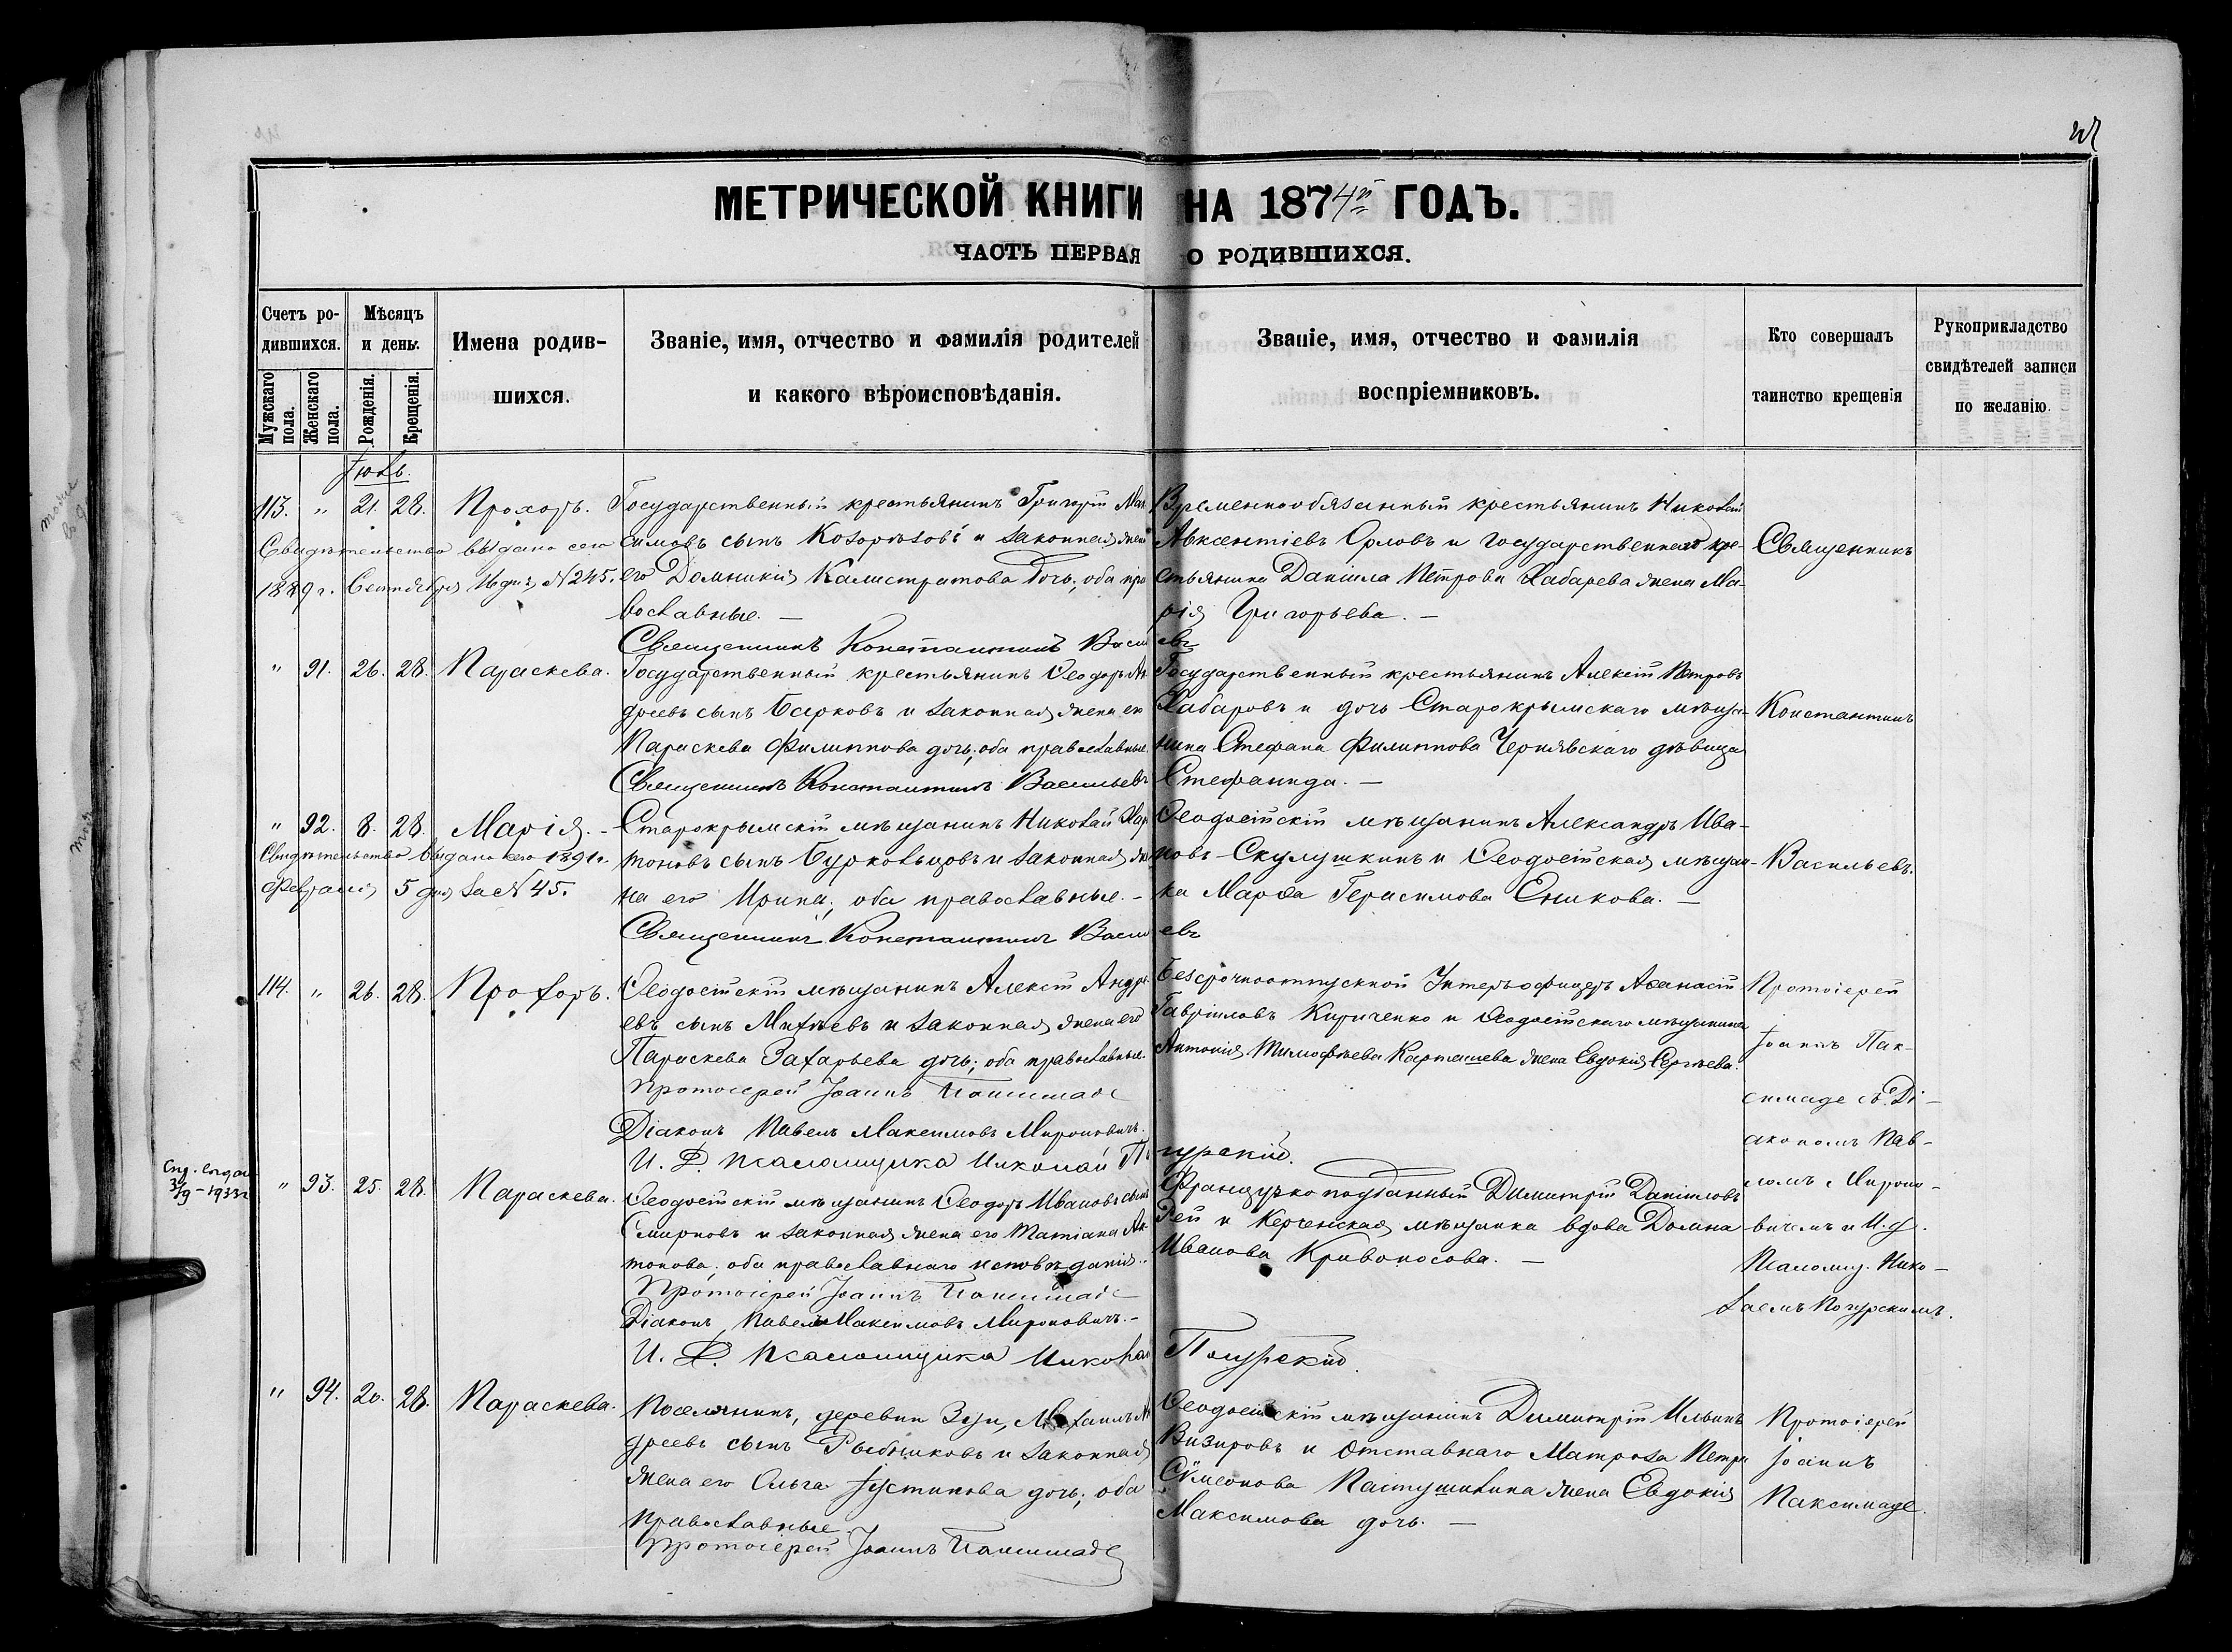 МЕТРИЧЕСКОЙ КНИГИ НА 1874й ГОДЪ.
ЧАСТЬ ПЕРВАЯ О РОДИВШИХСЯ.
Счетъ ро-
дившихся.
Мужскаго
пола.
Женскаго
пола.
Мѣсяцъ
и день.
Рожденія.
Крещенія.
Имена родив-
шихся.
Званіе, имя, отчество и фамилія родителей
и какого вѣроисповѣданія.
Званіе, имя, отчество и фамилія
воспріемниковъ.
Кто совершалъ
таинство крещенія
Рукоприкладство
свидѣтелей записи
по желанію.
Іюль.
113. " 21. 28. Прохоръ.
Свидѣтельство выдано сего
1889 г. Сентября 16 дня, № 245.
Государственный крестьянинъ Григорій Мак
симовъ сынъ Козорѣзовъ и законная жена
его Домникія Калистратова дочь, оба пра
вославные. —
Священникъ Константинъ Василь евъ
Временнообязанный крестьянинъ Николай
Авксентіевъ Орловъ и государственнаго кре-
стьянина Даніила Петрова Хабарева жена Ма-
рія Григорьева. —
Священникъ
" 91. 26. 28. Параскева.
Государственный крестьянинъ Ѳеодоръ Ан
дреевъ сынъ Барковъ и законная жена его
Параскева Филиппова дочь, оба православные.
Священникъ Константинъ Васильевъ
Государственный крестьянинъ Алексій Петровъ
Хабаровъ и дочь Старокрымскаго мѣща-
нина Стефана Филиппова Чернявскаго дѣвица
Стефанида. —
Константинъ
" 92. 8. 28. Марія. —
Свидѣтельство выдано сего 1891 г.
Февраля 5 дня за № 45.
Старокрымскій мѣщанинъ Николай Хар
тоновъ сынъ Бурковцовъ и законная же
на его Ирина, оба православные. —
Священникъ Константинъ Василь евъ
Ѳеодосійскій мѣщанинъ Александръ Ива-
новъ Скулушкинъ и Ѳеодосійская мѣщан-
ка Марѳа Герасимова Еникова. —
Васильевъ.
114. " 26. 28. Прохоръ.
Ѳеодосійскій мѣщанинъ Алексій Андре
евъ сынъ Михѣевъ и законная жена его
Параскева Захарьева дочь; оба православные.
Протоіерей Іоаннъ Паксимаде
Діаконъ Павелъ Максимовъ Мироновичъ.
И. Д. Псаломщика Николай По гурскій.
Безсрочноотпускной Унтеръ-офицеръ Аѳанасій
Гавріиловъ Кириченко и Ѳеодосійскаго мѣщанина
Антонія Тимофѣева Карташева жена Евдокія Сергѣева.
Протоіерей
Іоаннъ Пак-
симаде съ Ді-
акономъ Пав-
ломъ Мироно-
вичемъ и И. д.
Псаломщ. Нико-
лаемъ Погурскимъ.
" 93. 25. 28. Параскева.
Ѳеодосійскій мѣщанинъ Ѳеодоръ Ивановъ сынъ
Смирновъ и законная жена его Татіана Ан
тонова; оба православнаго исповѣданія.
Протоіерей Іоаннъ Паксимаде
Діаконъ Павелъ Максимовъ Мироновичъ. —
И. Д. Псаломщика Николай Погурскій
Французкоподданный Димитрій Даніиловъ
Рей и Керченская мѣщанка вдова Домна
Иванова Кривоносова. —
" 94. 20. 28. Параскева.
Поселянинъ, деревни Зуи, Михаилъ Ан
дреевъ сынъ Рыбниковъ и законная
жена его Ольга Іустинова дочь; оба
православные.
Протоіерей Іоаннъ Паксимаде
Ѳеодосійскій мѣщанинъ Димитрій Ильинъ
Визировъ и отставнаго Матроза Петра
Сѵмеонова Пастушихина жена Евдокія
Максимова дочь. —
Протоіерей
Іоаннъ
Паксимаде.